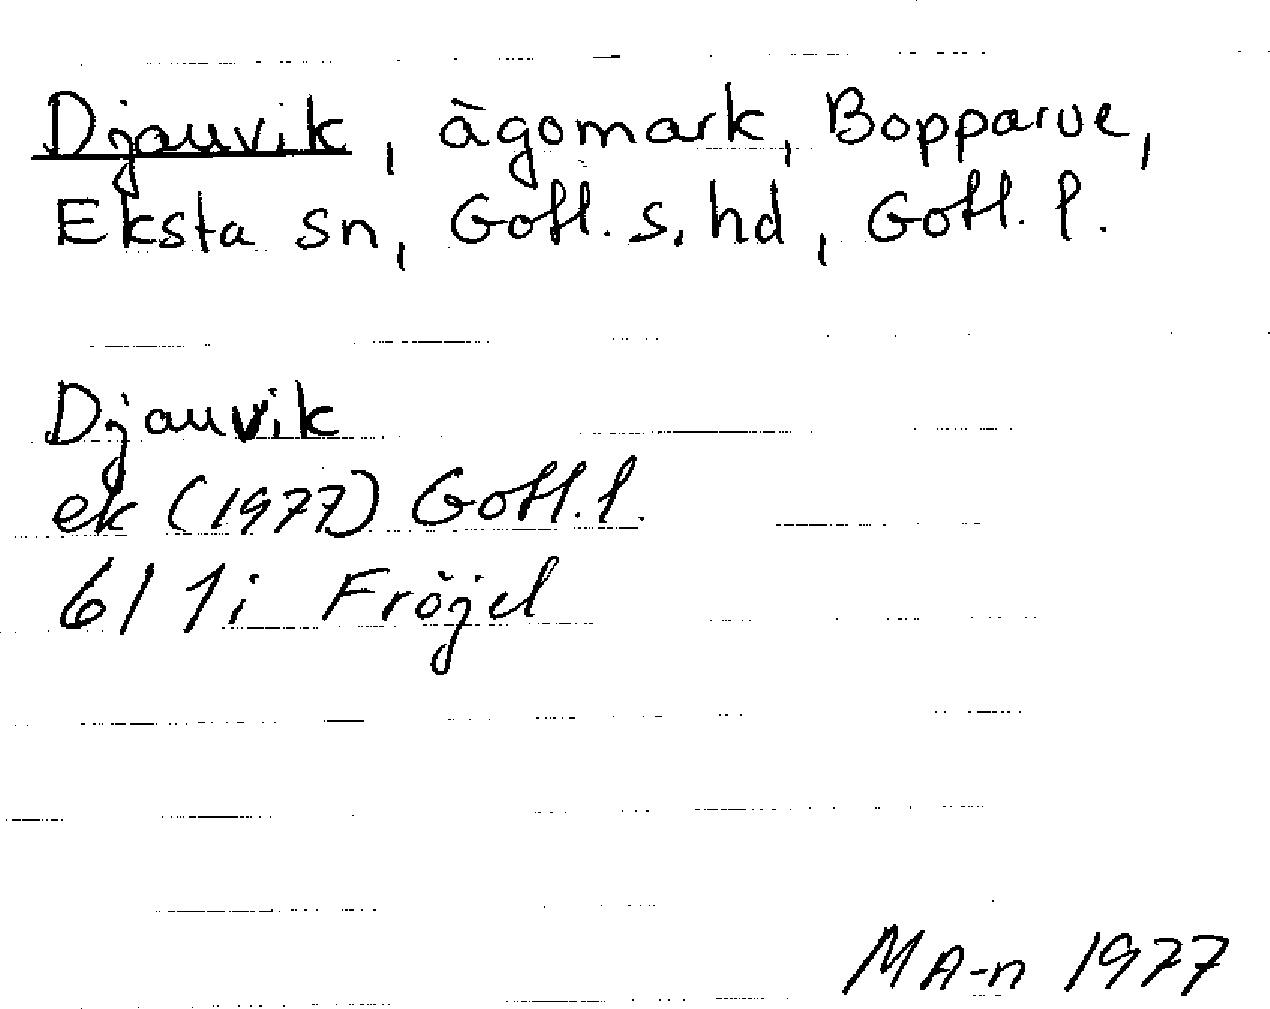 Djauvik, ägomark, Bopparve,
Eksta sn, Gotl. s. hd, Gotl. l.
Djauvik
ek (1977) Gotl. l.
6I 1i Fröjel
MA-n 1977